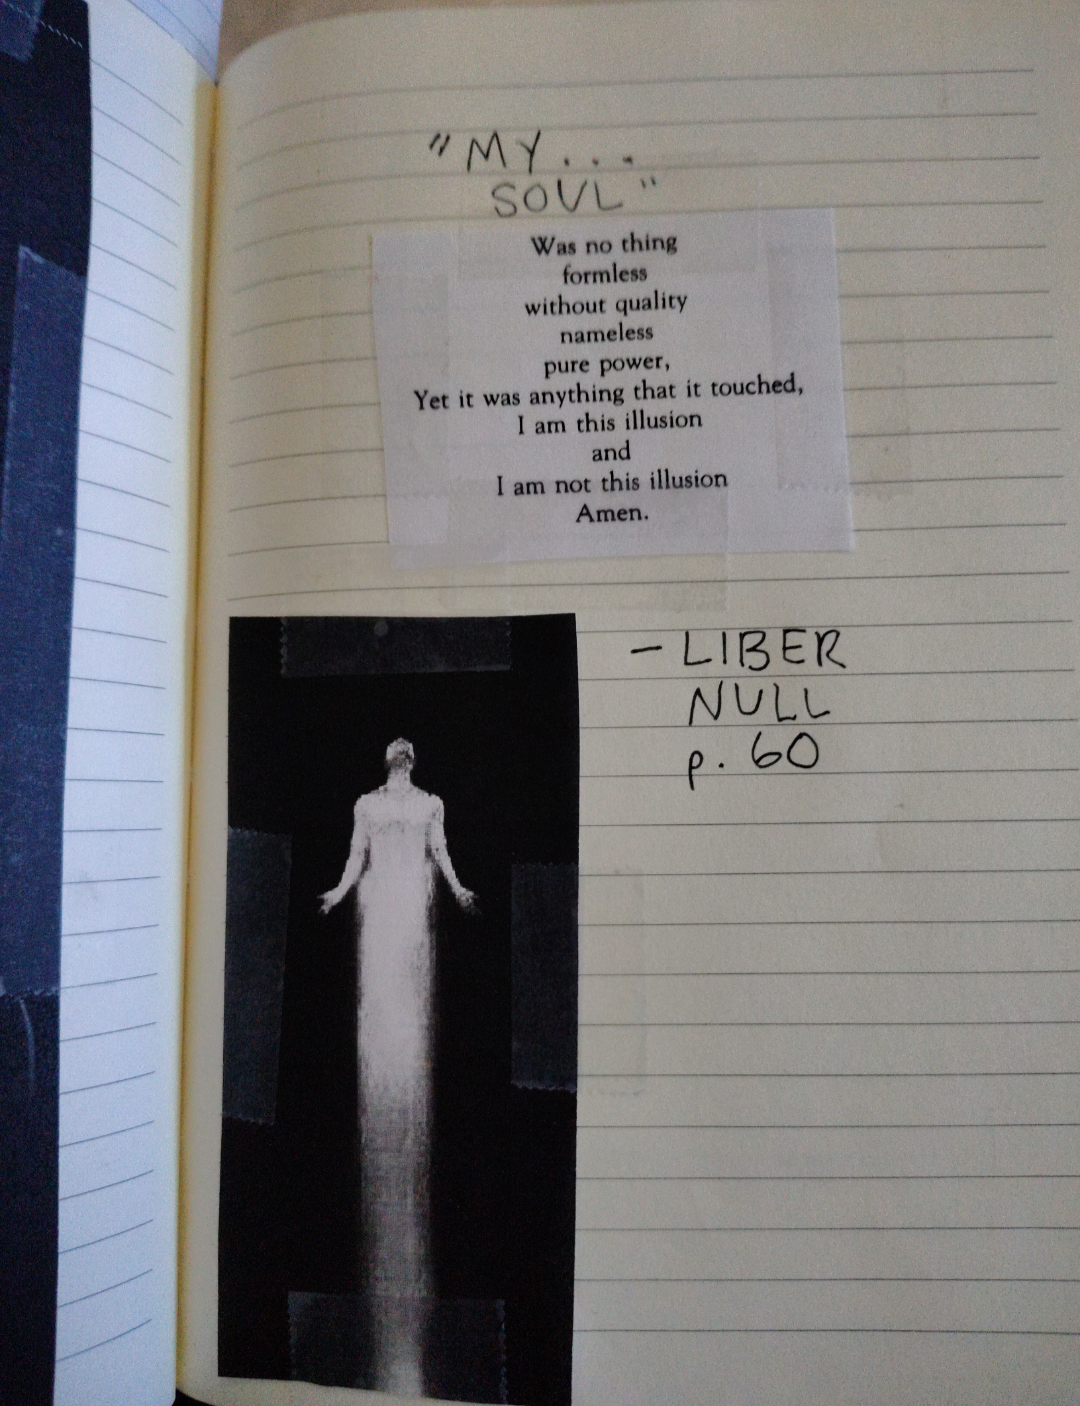 "MY...
SOUL"
Was no thing
formless
without quality
nameless
pure power,
Yet it was anything that it touched,
I am this illusion
and
I am not this illusion
Amen.
- LIBER
NULL
p. 60